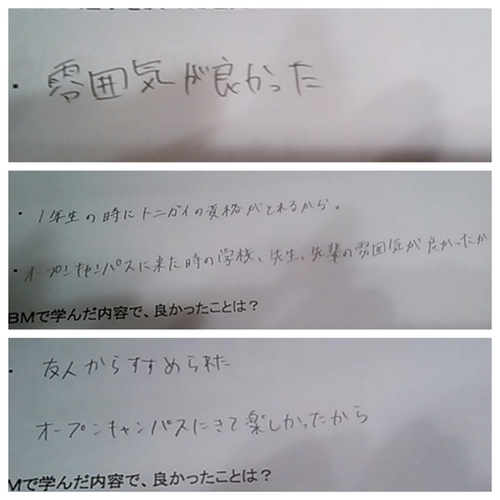 ・雰囲気が良かった
・1年生の時にトニガイの資格がとれるから。
・オープンキャンパスに来た時の学校、先生、先輩の雰囲気が良かったか
BMで学んだ内容で、良かったことは？
・友人からすすめられた
オープンキャンパスにきて楽しかったから
Mで学んだ内容で、良かったことは？